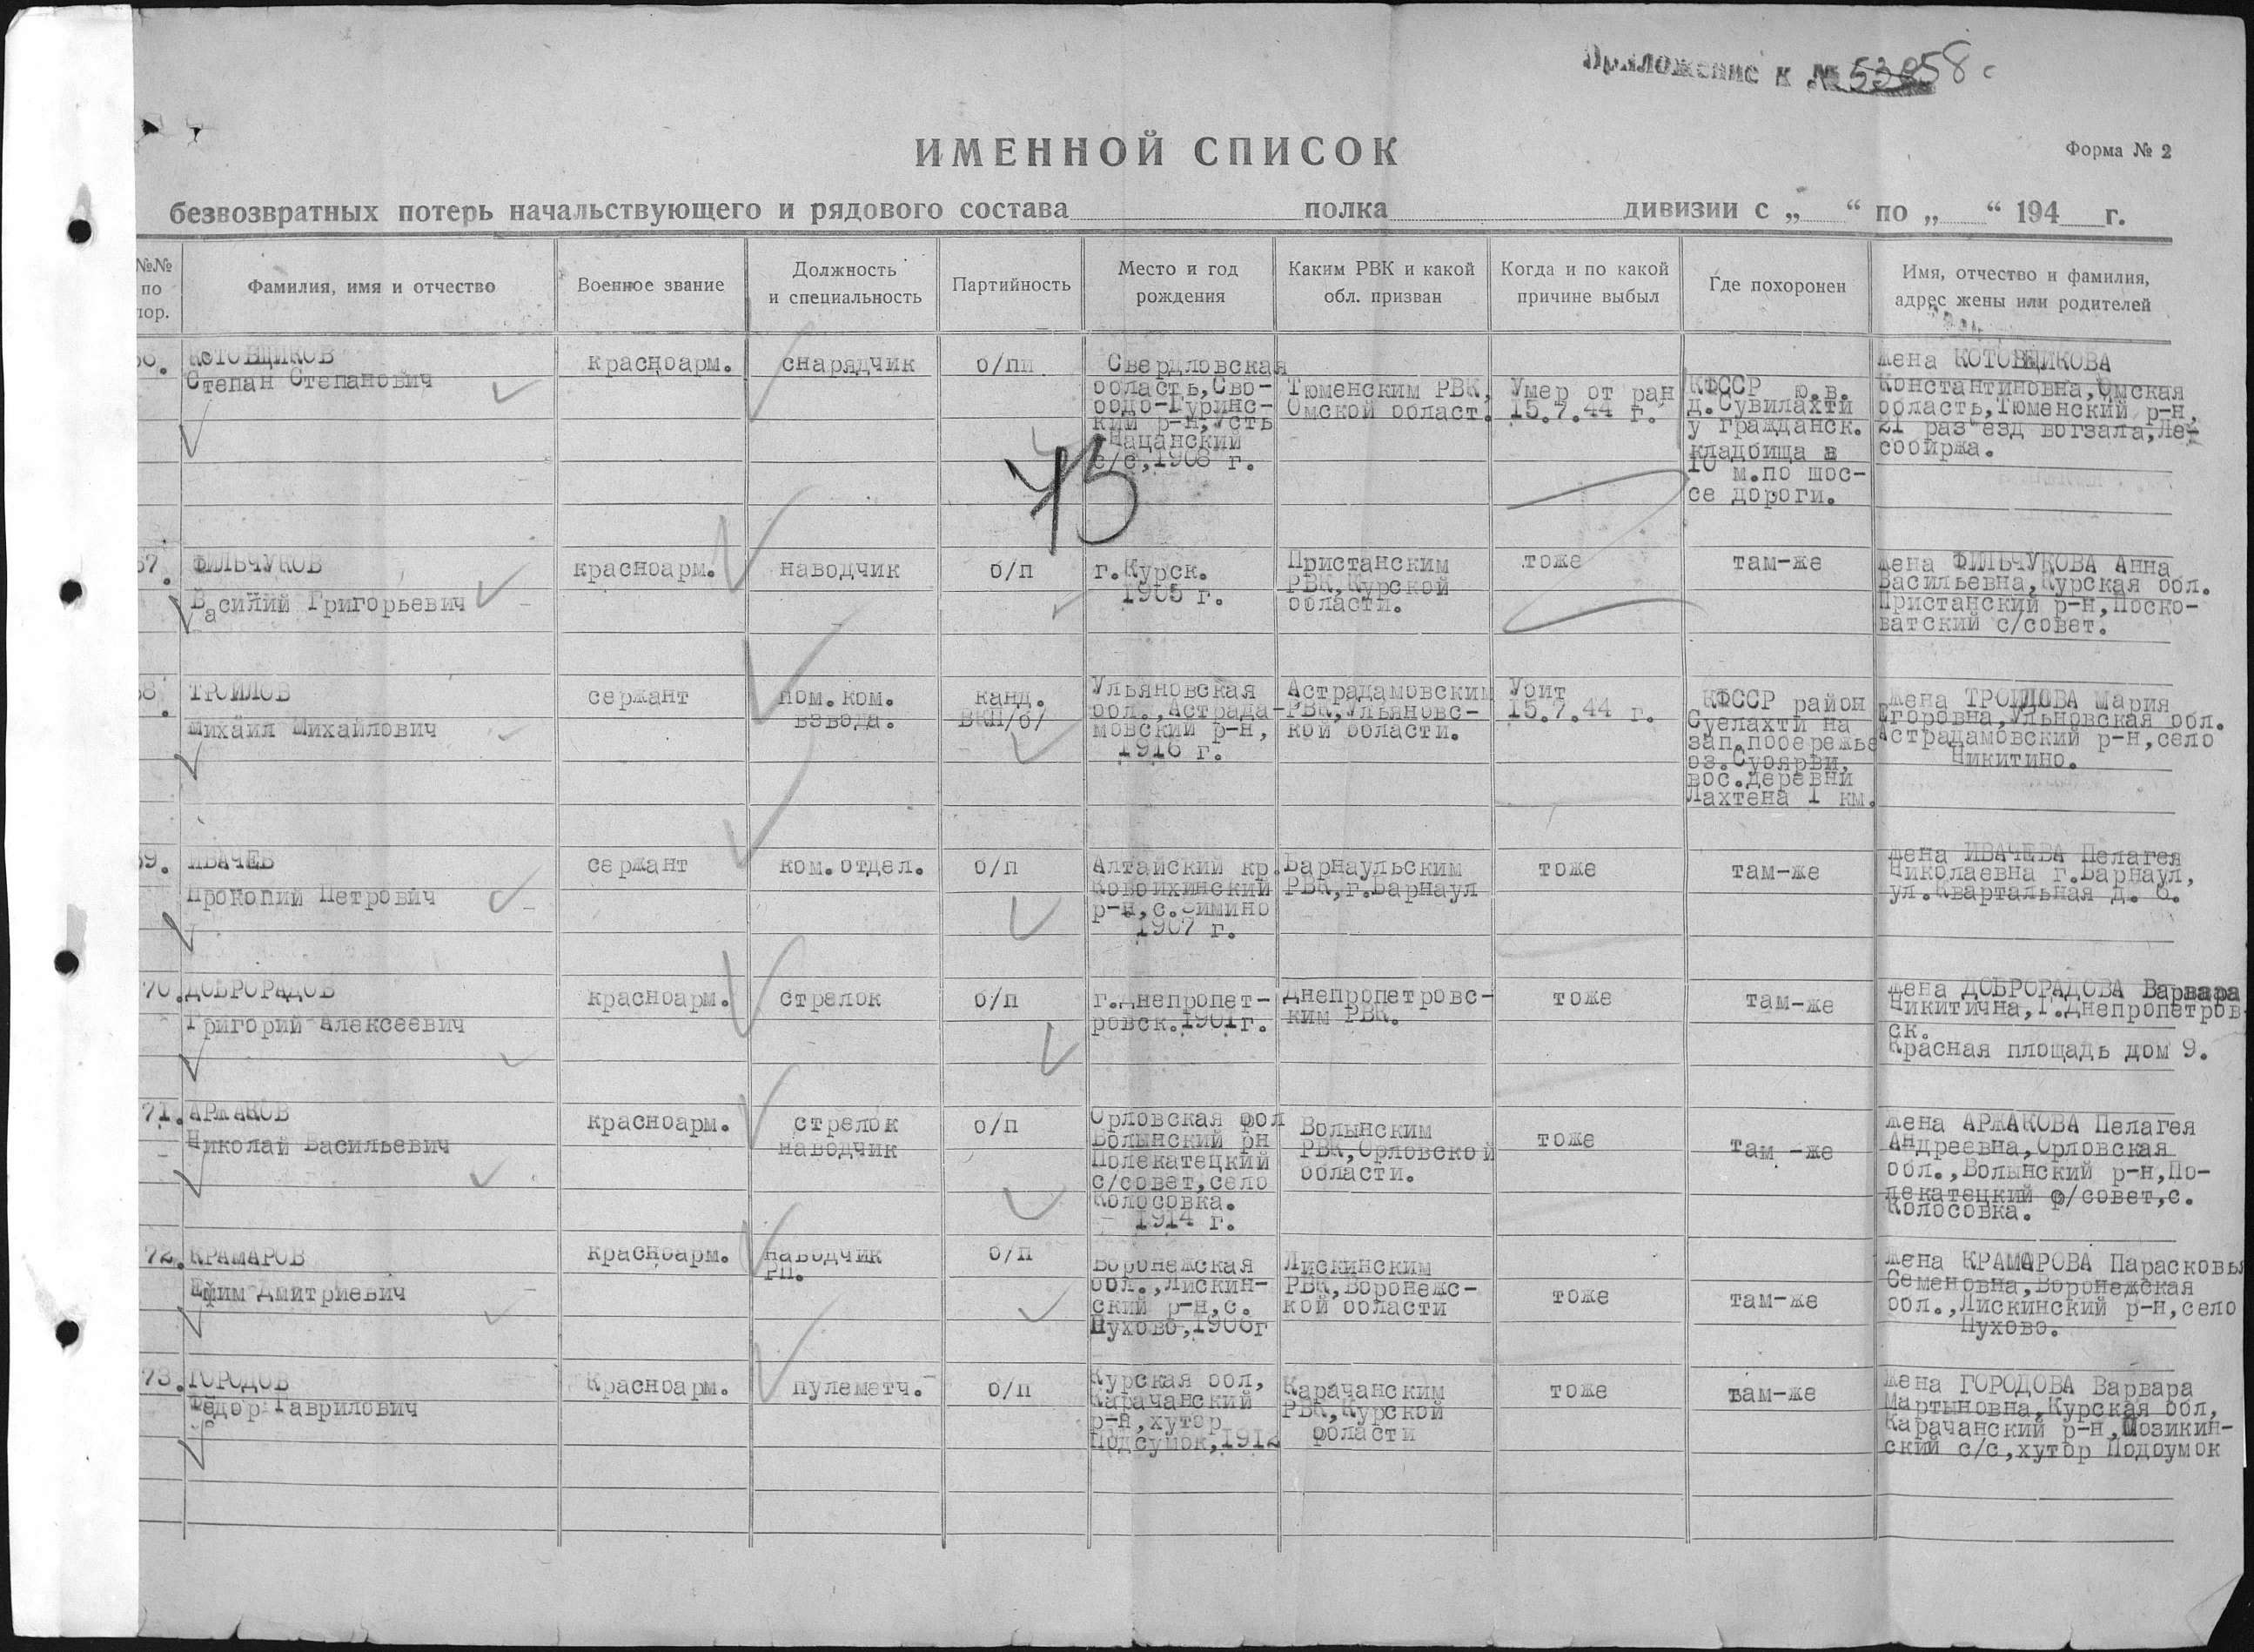 Приложение к № 53058с
ИМЕННОЙ СПИСОК
Форма № 2
безвозвратных потерь начальствующего и рядового состава полка дивизии с „ “ по „ “ 194 г.
№№
по
пор.
Фамилия, имя и отчество
Военное звание
Должность
и специальность
Партийность
Место и год
рождения
Каким РВК и какой
обл. призван
Когда и по какой
причине выбыл
Где похоронен
Имя, отчество и фамилия,
адрес жены или родителей
75
66.
КОТОВЩИКОВ
Степан Степанович
красноарм.
снарядчик
о/пи
Свердловская
область, Сво-
бодо-Туринс-
кий р-н, Усть
Ницанский
с/с, 1908 г.
Тюменским РВК,
Омской област.
Умер от ран
15.7.44 г.
КФССР ю.в.
д.Сувилахти
у гражданск.
кладбища в
10 м.по шос-
се дороги.
жена КОТОВЩИКОВА
Константиновна,Омская
область,Тюменский р-н,
21 раз"езд вогзала,Ле-
собиржа.
67.
ФИЛЬЧУКОВ
Василий Григорьевич
красноарм.
наводчик
о/п
г.Курск.
1905 г.
Пристанским
РВК,Курской
области.
тоже
там-же
жена ФИЛЬЧУКОВА Анна
Васильевна,Курская обл.
Пристанский р-н,Поско-
ватский с/совет.
68.
ТРОИЛОВ
Михаил Михайлович
сержант
пом.ком.
взвода.
канд.
ВКП/б/
Ульяновская
обл.,Астрада-
мовский р-н,
1916 г.
Астрадамовским
РВК,Ульяновс-
кой области.
Убит
15.7.44 г.
КФССР район
Суелахти на
зап.побережье
оз.Суоярви,
вос.деревни
Лахтена 1 км.
жена ТРОИЛОВА Мария
Егоровна,Ульновская обл.
Астрадамовский р-н,село
Никитино.
69.
ИВАЧЕВ
Прокопий Петрович
сержант
ком.отдел.
о/п
Алтайский кр.
Новоихинский
р-н,с.Зимино
1907 г.
Барнаульским
РВК,г.Барнаул
тоже
там-же
жена ИВАЧЕВА Пелагея
Николаевна г.Барнаул,
ул.Квартальная д. 6.
70.
ДОБРОРАДОВ
Григорий Алексеевич
красноарм.
стрелок
о/п
г.Днепропет-
ровск.1901г.
Днепропетровс-
ким РВК.
тоже
там-же
жена ДОБРОРАДОВА Варвара
Никитична,г.Днепропетров-
ск.
Красная площадь дом 9.
71.
АРЖАКОВ
Николай Васильевич
красноарм.
стрелок
наводчик
о/п
Орловская обл
Волынский рн
Полекатецкий
с/совет,село
Колосовка.
1914 г.
Волынским
РВК,Орловской
области.
тоже
там -же
жена АРЖАКОВА Пелагея
Андреевна,Орловская
обл.,Волынский р-н,По-
лекатецкий с/совет,с.
Колосовка.
72.
КРАМАРОВ
Ефим Дмитриевич
красноарм.
наводчик
РП.
о/п
Воронежская
обл.,Лискин-
ский р-н,с.
Пухово,1906г
Лискинским
РВК,Воронежс-
кой области
тоже
там-же
жена КРАМАРОВА Парасковья
Семеновна,Воронежская
обл.,Лискинский р-н,село
Пухово.
73.
ГОРОДОВ
Фёдор Гаврилович
Красноарм.
пулеметч.
о/п
Курская обл,
Карачанский
р-н,хутор
Подсумок,1912
Карачанским
РВК,Курской
области
тоже
там-же
жена ГОРОДОВА Варвара
Мартыновна,Курская обл,
Карачанский р-н,Мозикин-
ский с/с,хутор Подоумок